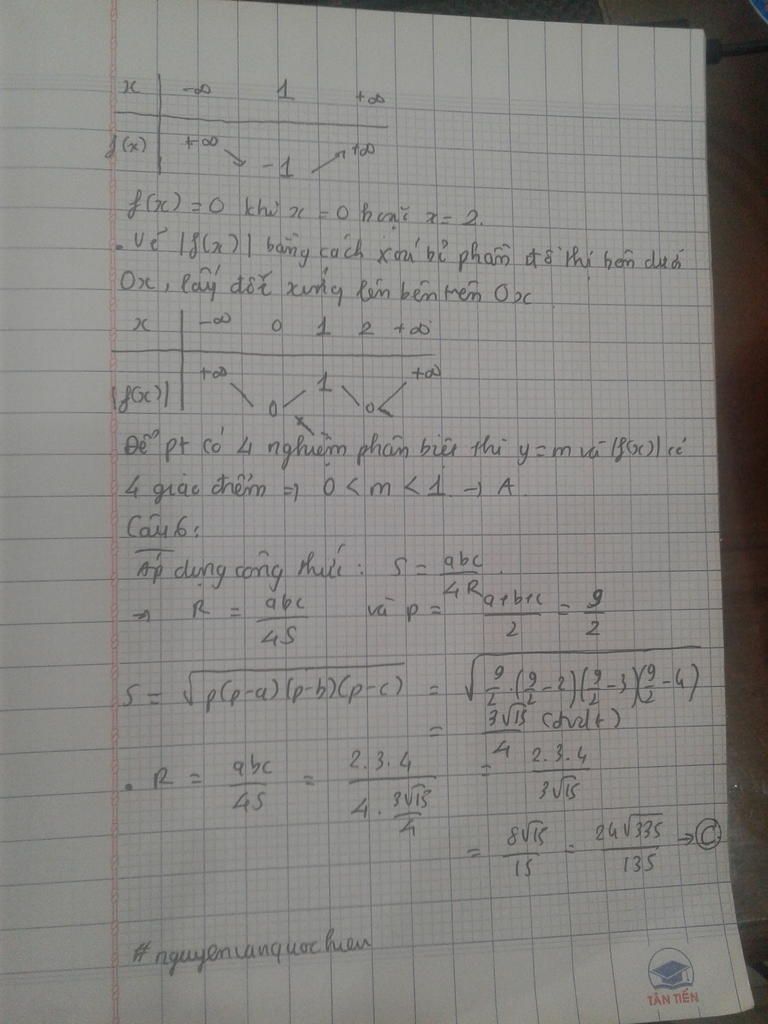 x | -∞ 1 +∞
f(x) | +∞ ↘ -1 ↗ +∞
f(x) = 0 khi x = 0 hoặc x = 2.
. Vẽ |f(x)| bằng cách xoá bỏ phần đồ thị bên dưới
Ox, lấy đối xứng lên bên trên Ox
x | -∞ 0 1 2 +∞
|f(x)| | +∞ 0 1 0 +∞
Để pt có 4 nghiệm phân biệt thì y = m và |f(x)| có
4 giao điểm => 0 < m < 1 → A
Câu 6:
Áp dụng công thức: S = abc/4R.
→ R = abc/4S và p = (a+b+c)/2 = 9/2
S = √(p(p-a)(p-b)(p-c)) = √(9/2.(9/2-2)(9/2-3)(9/2-4))
= 3√15/4 (đvdt)
. R = abc/4S = 2.3.4/(4.3√15/4) = 2.3.4/3√15
= 8√15/15 = 24√335/135 → C
#nguyenvanquochuan
TÂN TIẾN